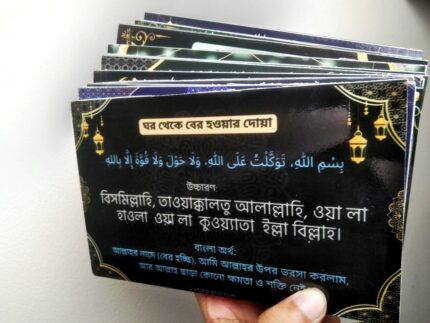 ঘর থেকে বের হওয়ার দোয়া
بِسْمِ اللَّهِ، تَوَكَّلْتُ عَلَى اللَّهِ، وَلَا حَوْلَ وَلَا قُوَّةَ إِلَّا بِاللَّهِ
উচ্চারণ:
বিসমিল্লাহি, তাওয়াক্কালতু আলাল্লাহি, ওয়া লা
হাওলা ওয়া লা কুওয়্যাতা ইল্লা বিল্লাহ।
বাংলা অর্থ:
আল্লাহর নামে (বের হচ্ছি), আমি আল্লাহর উপর ভরসা করলাম,
আর আল্লাহ ছাড়া কোনো ক্ষমতা ও শক্তি নেই